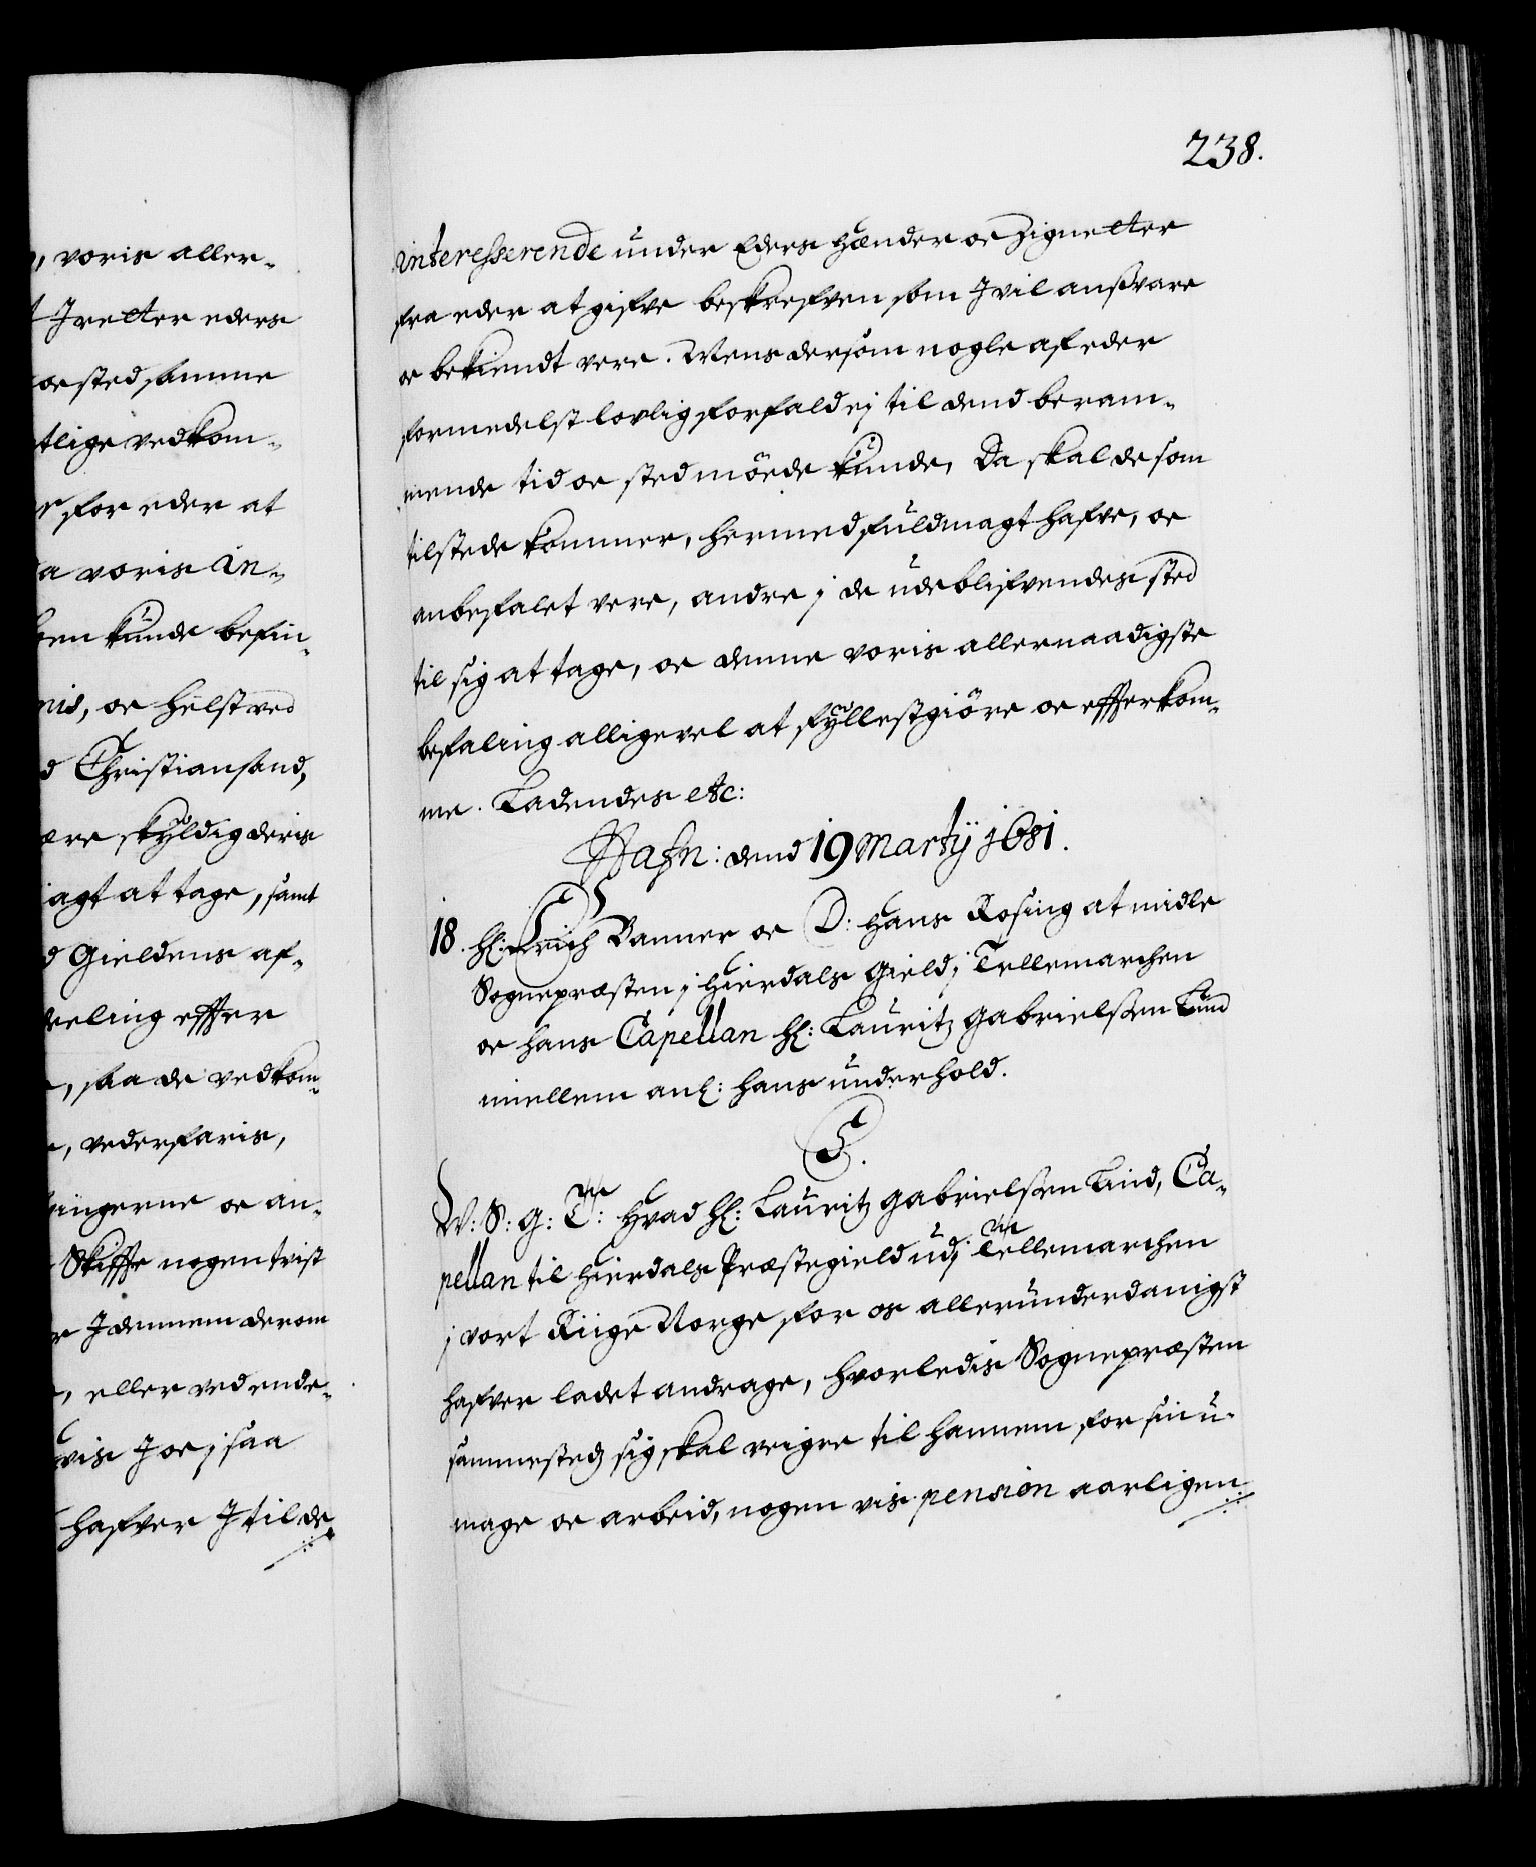 , voris aller-
Jretter eders
oc sted samme
tlige vedkom-
for eder at
a voris in-
kunde befin-
nis, oc helst ved
d Christiansand,
ære skyldig deris
agt at tage, samt
d Gieldens af-
deeling effter
, saa de vedkom-
, vederfaris,
ingerne oc an-
Skiffte nogen tvist
r J dennem derom
, eller ved ende-
vis J oc i saa
hafver J til de
238.
interesserende under Eders hænder oc Zignetter
fra eder at gifve beskrefven som J vil ansvare
oc bekiendt vere. Mens dersom nogle af eder
formedelst lovlig forfald ej til dend beram-
mende tid oc sted möede kunde, Da skal de som
tilstede kommer, hermed fuldmagt hafve, oc
anbefalet vere, andre i de udeblifvendes sted
til sig at tage, oc denne voris allernaadigste
befaling alligevel at fyllestgiöre oc effterkom-
me. Ladendes etc:
Hafn: dend 19 Martij 1681.
18. H: Erich Banner oc D: Hans Rosing at midle
Sognepræsten i Hierdals Gield i Tellemarchen
oc hans Capellan H: Lauritz Gabrielssen Lund
miellem anl: hans underhold.
C5.
V: S: G: T: Hvad H: Lauritz Gabrielssen Lund, Ca-
pellan til Hierdals Præstegield udj Tellemarchen
i vort Riige Norge for os allerunderdanigst
hafver ladet andrage, hvorledis Sognepræsten
sammesteds sig skal veigre til hannem for sin u-
mage oc arbeid, nogen vis pension aarligen